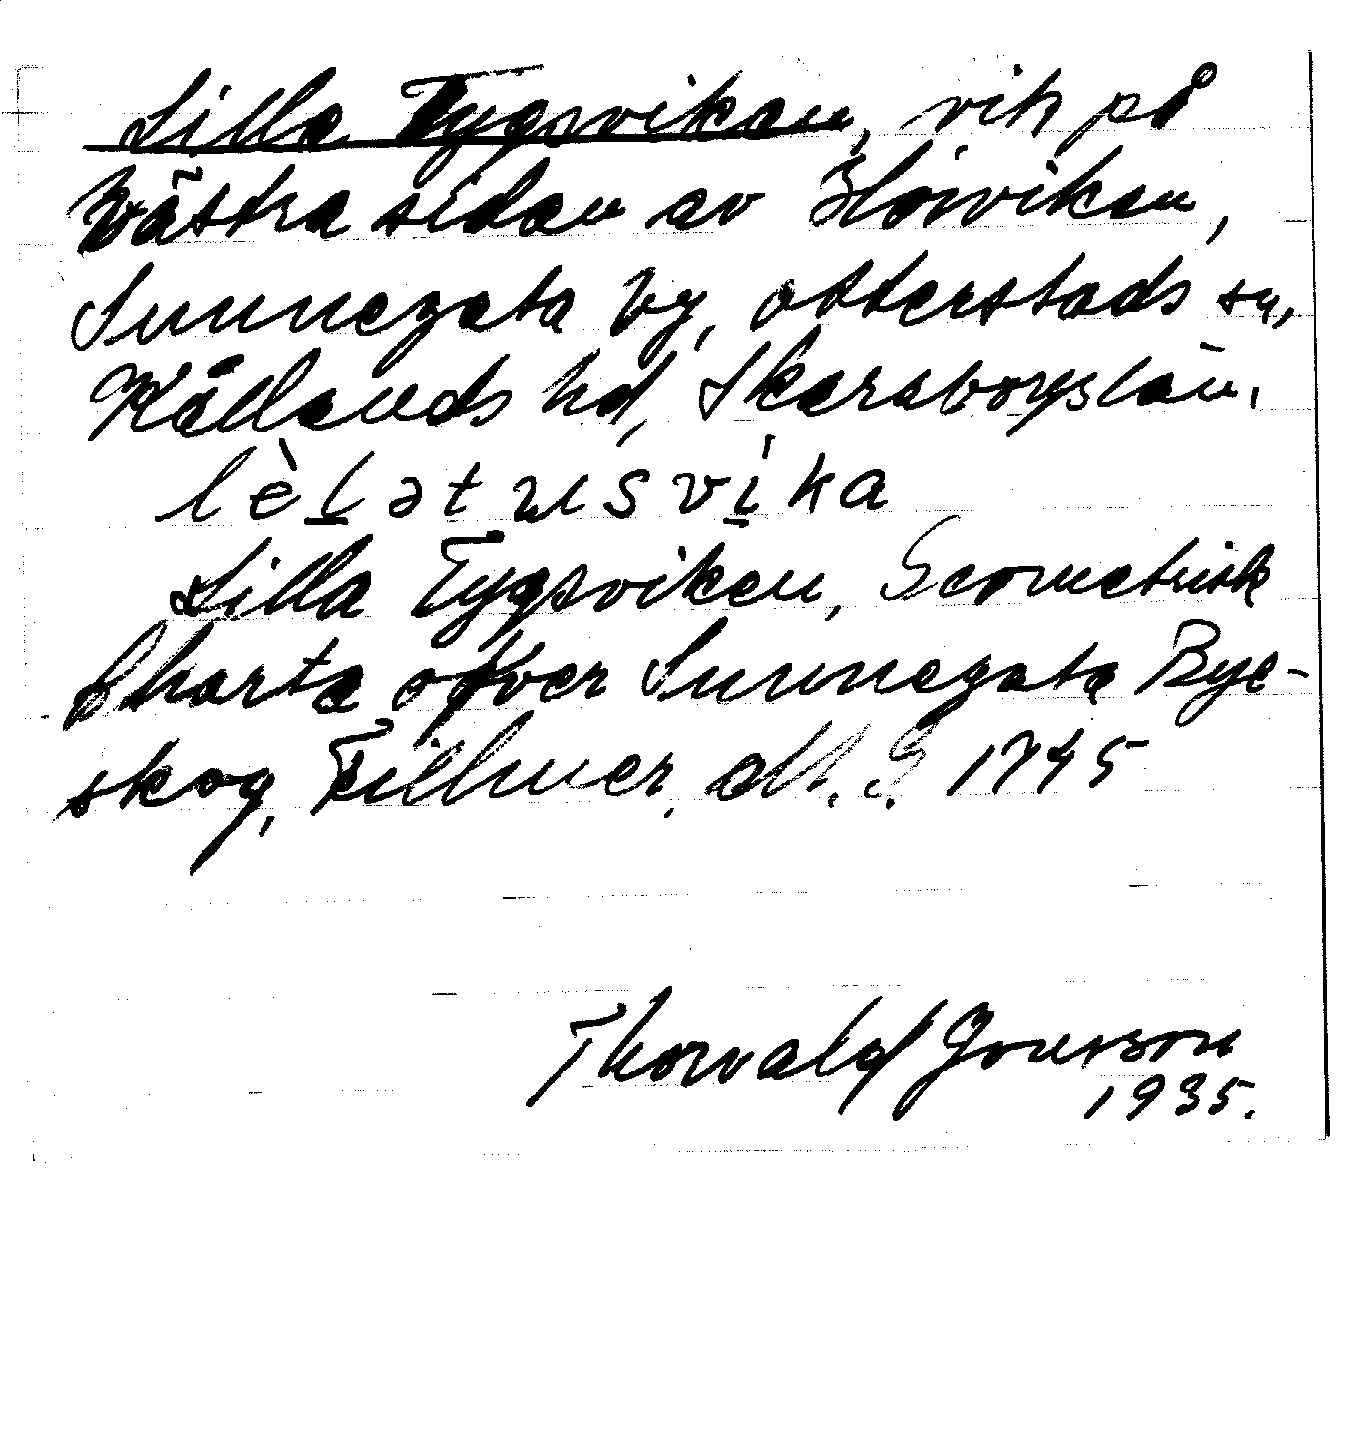 Lilla Tygsviken, vik på
Västra sidan av
Sunnegata by, otterstads sn,
Kållands hd, Skaraborgs län.
Lilla Tygsviken, Geometrisk
Charta öfver Sunnegata Bye-
skog, 1745
Thorvald Jonsson
1935.